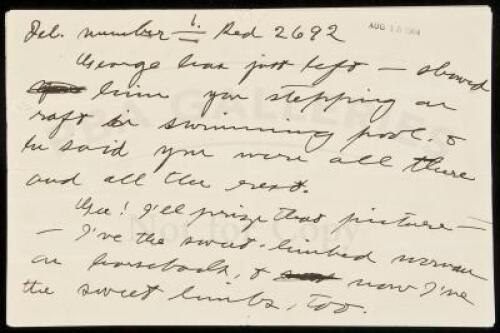 Del. number 1. Red 2692
AUG 18
George has just left — showed
him you stepping on
raft in swimming pool. &
he said you were all there
and all the rest.
Gee! I'll prize that picture —
— I've the sweet-limbed woman
on horseback, & now I've
the sweet limbs, too.
PBA GALLERIES
Not for Copy